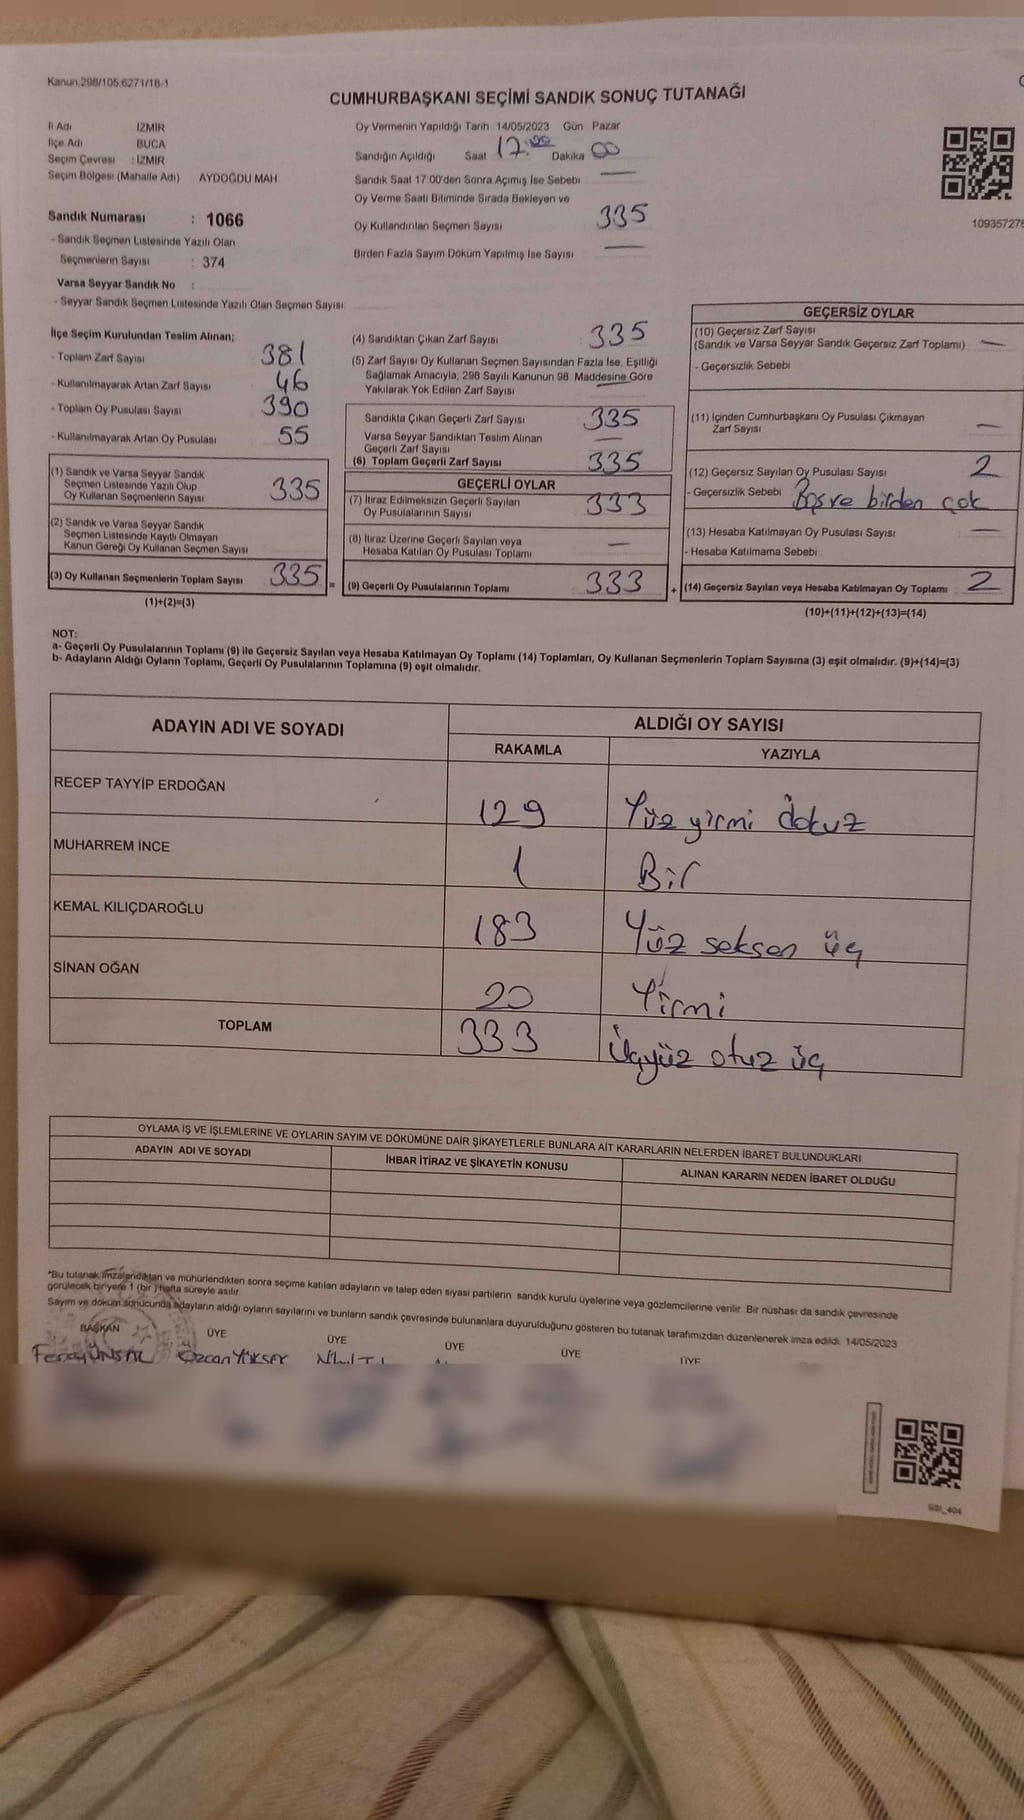 Kanun.298/105.6271/18-1
CUMHURBAŞKANI SEÇİMİ SANDIK SONUÇ TUTANAĞI
İl Adı İZMİR
İlçe Adı BUCA
Seçim Çevresi : İZMİR
Seçim Bölgesi (Mahalle Adı) AYDOĞDU MAH.
Sandık Numarası : 1066
- Sandık Seçmen Listesinde Yazılı Olan
Seçmenlerin Sayısı : 374
Varsa Seyyar Sandık No :
- Seyyar Sandık Seçmen Listesinde Yazılı Olan Seçmen Sayısı:
Oy Vermenin Yapıldığı Tarih 14/05/2023 Gün Pazar
Sandığın Açıldığı Saat 17.00 Dakika 00
Sandık Saat 17 00'den Sonra Açımış İse Sebebi —
Oy Verme Saati Bitiminde Sırada Bekleyen ve
Oy Kullandırılan Seçmen Sayısı 335
Birden Fazla Sayım Döküm Yapılmış İse Sayısı —
109357276
İlçe Seçim Kurulundan Teslim Alınan;
- Toplam Zarf Sayısı 381
- Kullanılmayarak Artan Zarf Sayısı 46
- Toplam Oy Pusulası Sayısı 390
- Kullanılmayarak Artan Oy Pusulası 55
(1) Sandık ve Varsa Seyyar Sandık
Seçmen Listesinde Yazılı Olup
Oy Kullanan Seçmenlerin Sayısı 335
(2) Sandık ve Varsa Seyyar Sandık
Seçmen Listesinde Kayıtlı Olmayan
Kanun Gereği Oy Kullanan Seçmen Sayısı
(3) Oy Kullanan Seçmenlerin Toplam Sayısı 335 =
(1)+(2)=(3)
(4) Sandıktan Çıkan Zarf Sayısı : 335
(5) Zarf Sayısı Oy Kullanan Seçmen Sayısından Fazla İse, Eşitliği
Sağlamak Amacıyla, 298 Sayılı Kanunun 98. Maddesine Göre
Yakılarak Yok Edilen Zarf Sayısı —
Sandıkta Çıkan Geçerli Zarf Sayısı 335
Varsa Seyyar Sandıktan Teslim Alınan
Geçerli Zarf Sayısı —
(6) Toplam Geçerli Zarf Sayısı 335
GEÇERLİ OYLAR
(7) İtiraz Edilmeksizin Geçerli Sayılan
Oy Pusulalarının Sayısı 333
(8) İtiraz Üzerine Geçerli Sayılan veya
Hesaba Katılan Oy Pusulası Toplamı —
(9) Geçerli Oy Pusulalarının Toplamı 333 +
GEÇERSİZ OYLAR
(10) Geçersiz Zarf Sayısı
(Sandık ve Varsa Seyyar Sandık Geçersiz Zarf Toplamı) —
- Geçersizlik Sebebi
(11) İçinden Cumhurbaşkanı Oy Pusulası Çıkmayan
Zarf Sayısı —
(12) Geçersiz Sayılan Oy Pusulası Sayısı 2
- Geçersizlik Sebebi Boş ve birden çok
(13) Hesaba Katılmayan Oy Pusulası Sayısı —
- Hesaba Katılmama Sebebi
(14) Geçersiz Sayılan veya Hesaba Katılmayan Oy Toplamı 2
(10)+(11)+(12)+(13)=(14)
NOT:
a- Geçerli Oy Pusulalarının Toplamı (9) ile Geçersiz Sayılan veya Hesaba Katılmayan Oy Toplamı (14) Toplamları, Oy Kullanan Seçmenlerin Toplam Sayısına (3) eşit olmalıdır. (9)+(14)=(3)
b- Adayların Aldığı Oyların Toplamı, Geçerli Oy Pusulalarının Toplamına (9) eşit olmalıdır.
ADAYIN ADI VE SOYADI ALDIĞI OY SAYISI
RAKAMLA YAZIYLA
RECEP TAYYİP ERDOĞAN 129 Yüz yirmi dokuz
MUHARREM İNCE 1 Bir
KEMAL KILIÇDAROĞLU 183 Yüz seksen üç
SİNAN OĞAN 20 Yirmi
TOPLAM 333 Üçyüz otuz üç
OYLAMA İŞ VE İŞLEMLERİNE VE OYLARIN SAYIM VE DÖKÜMÜNE DAİR ŞİKAYETLERLE BUNLARA AİT KARARLARIN NELERDEN İBARET BULUNDUKLARI
ADAYIN ADI VE SOYADI İHBAR İTİRAZ VE ŞİKAYETİN KONUSU ALINAN KARARIN NEDEN İBARET OLDUĞU
*Bu tutanak imzalandıktan ve mühürlendikten sonra seçime katılan adayların ve talep eden siyasi partilerin sandık kurulu üyelerine veya gözlemcilerine verilir. Bir nüshası da sandık çevresinde
görülecek bir yere 1 (bir) hafta süreyle asılır
Sayım ve döküm sonucunda adayların aldığı oyların sayılarını ve bunların sandık çevresinde bulunanlara duyurulduğunu gösteren bu tutanak tarafımızdan düzenlenerek imza edildi. 14/05/2023
BAŞKAN ÜYE ÜYE ÜYE ÜYE ÜYE
Feray ÜNSAL Özcan YÜKSEK
SSI_404